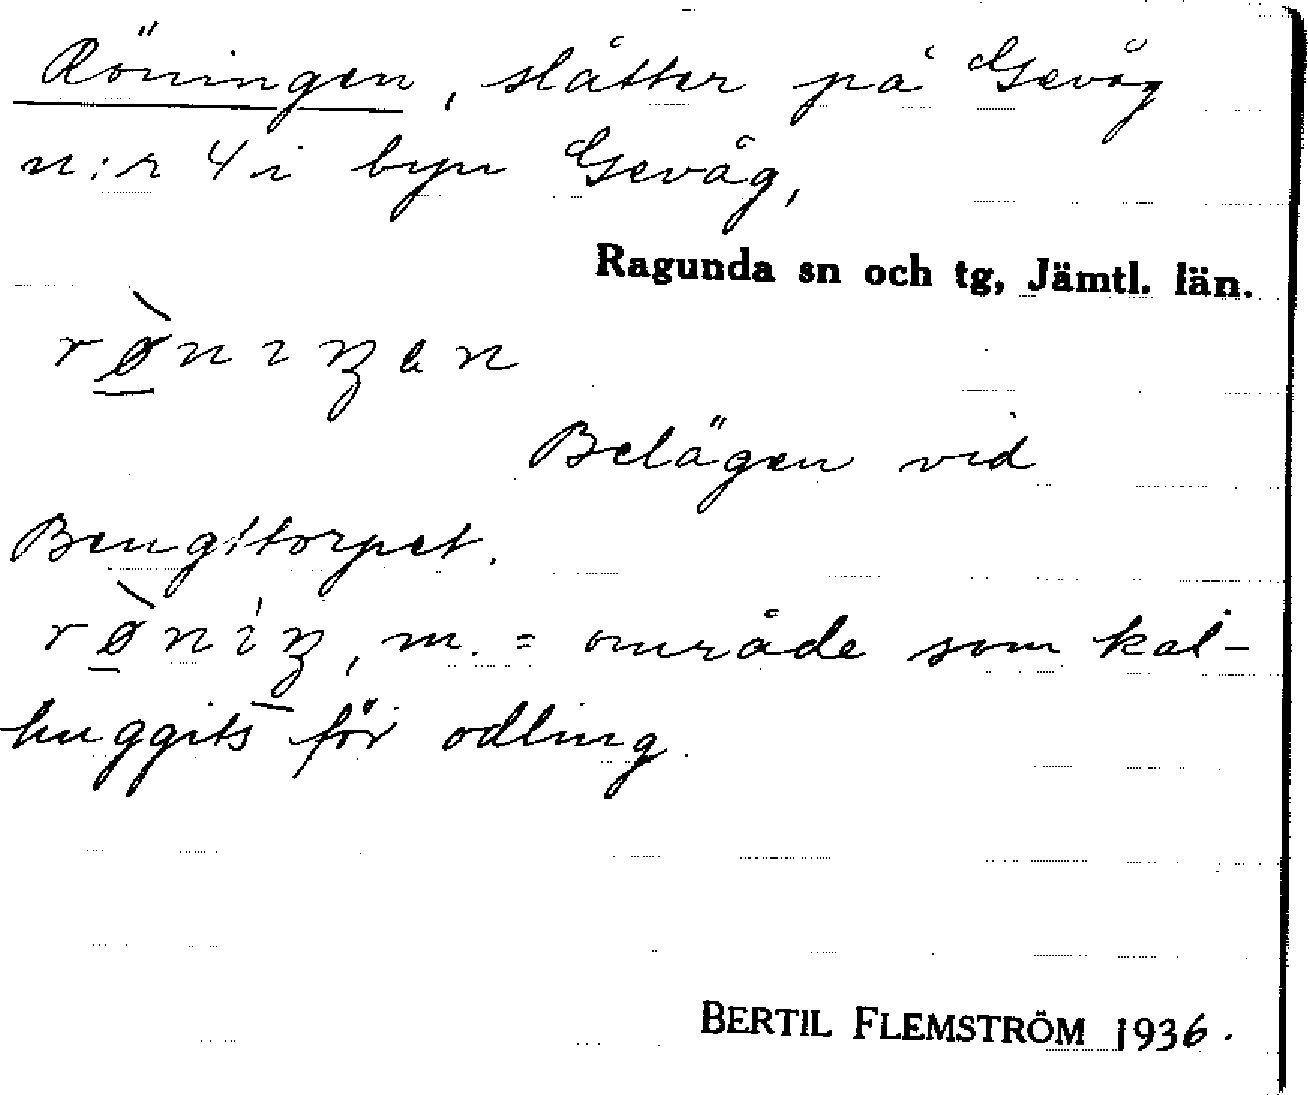 Röningen, slåtter på Gevåg
n:r 4 i byn Gevåg,
Ragunda sn och tg, Jämtl. län.
rø̲̀nıŋən
Belägen vid
Bengttorpet.
rø̲̀niŋ, m. = område som kal-
huggits för odling.
BERTIL FLEMSTRÖM 1936.